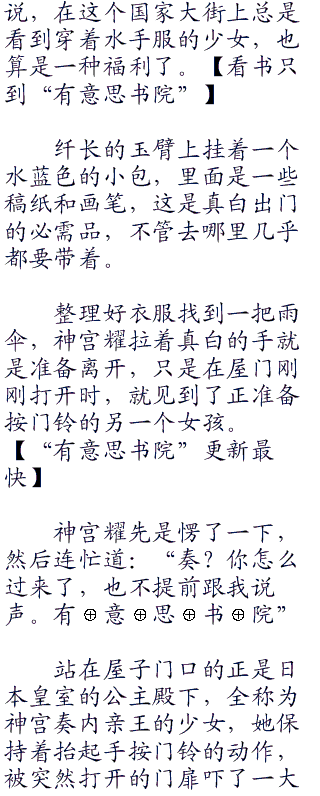 说，在这个国家大街上总是
看到穿着水手服的少女，也
算是一种福利了。【看书只
到“有意思书院”】
纤长的玉臂上挂着一个
水蓝色的小包，里面是一些
稿纸和画笔，这是真白出门
的必需品，不管去哪里几乎
都要带着。
整理好衣服找到一把雨
伞，神宫耀拉着真白的手就
是准备离开，只是在屋门刚
刚打开时，就见到了正准备
按门铃的另一个女孩。
【“有意思书院”更新最
快】
神宫耀先是愣了一下，
然后连忙道：“奏？你怎么
过来了，也不提前跟我说
声。有⊕意⊕思⊕书⊕院”
站在屋子门口的正是日
本皇室的公主殿下，全称为
神宫奏内亲王的少女，她保
持着抬起手按门铃的动作，
被突然打开的门扉吓了一大